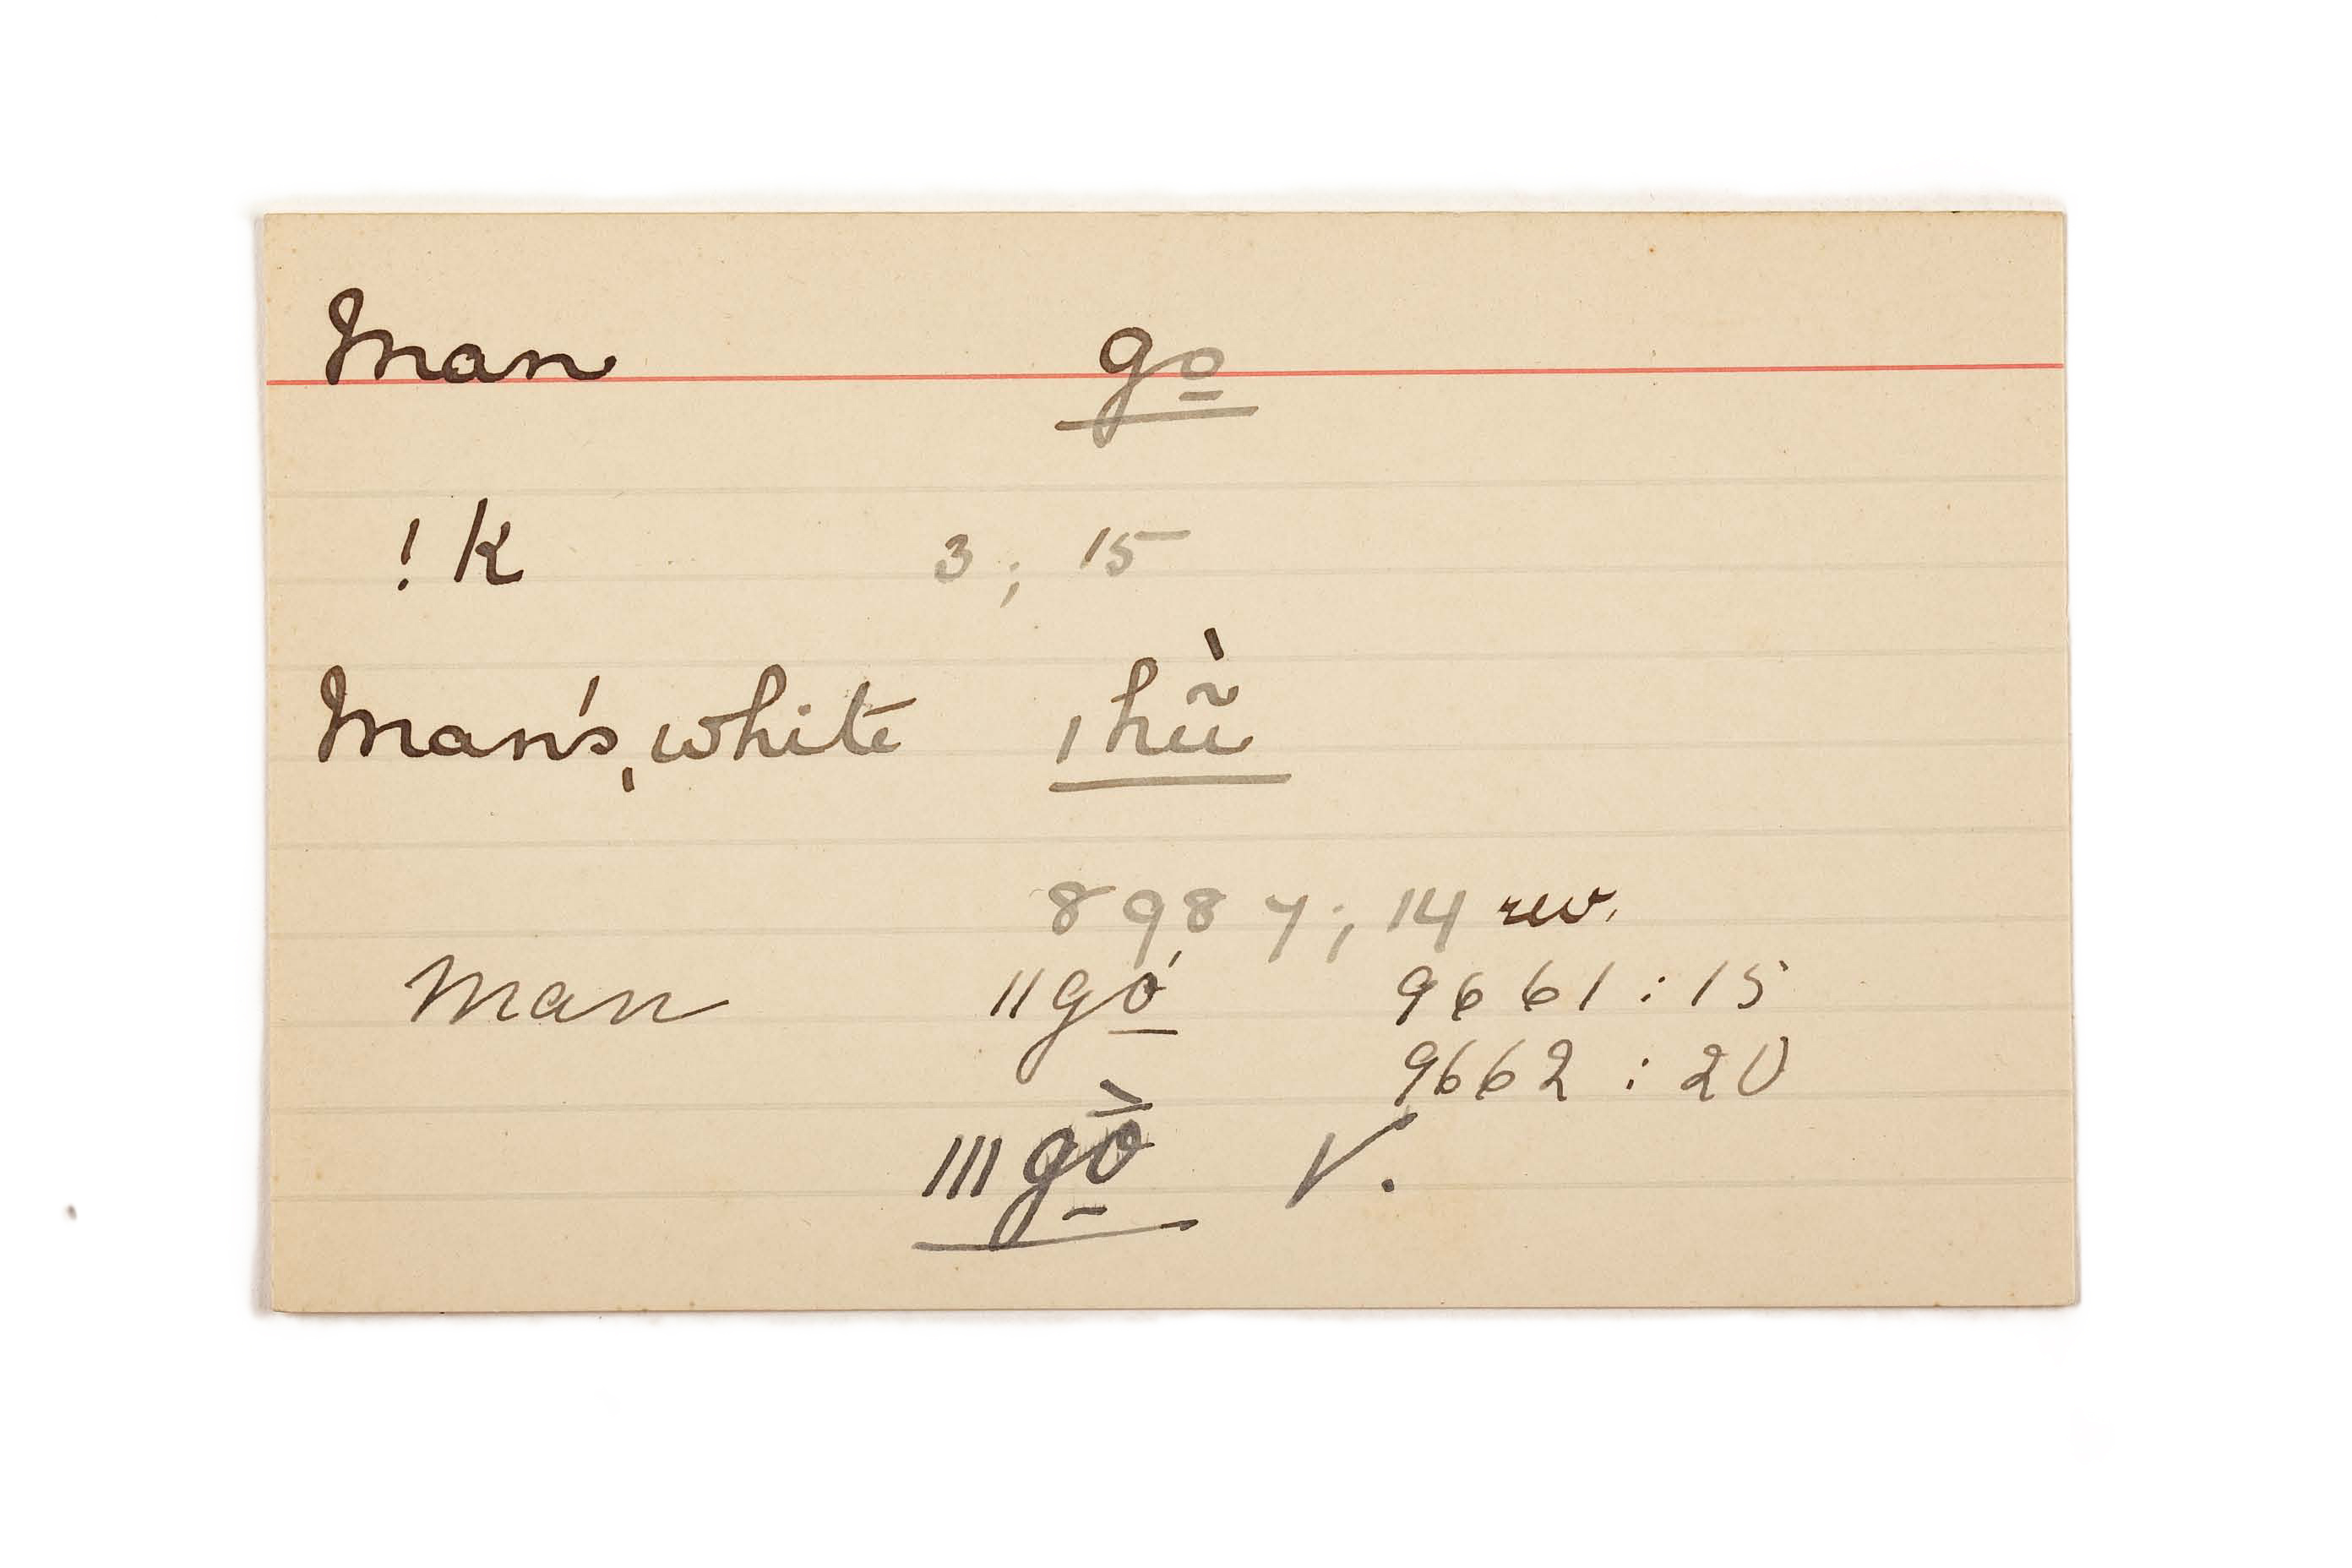 Man go̱
! K 3 ; 15
Man's, white ǀhũ̀
8987 ; 14 rev.
Man ǁgó̱ 9661 : 15
9662 : 20
ǀǀǀgṑ̱ V.